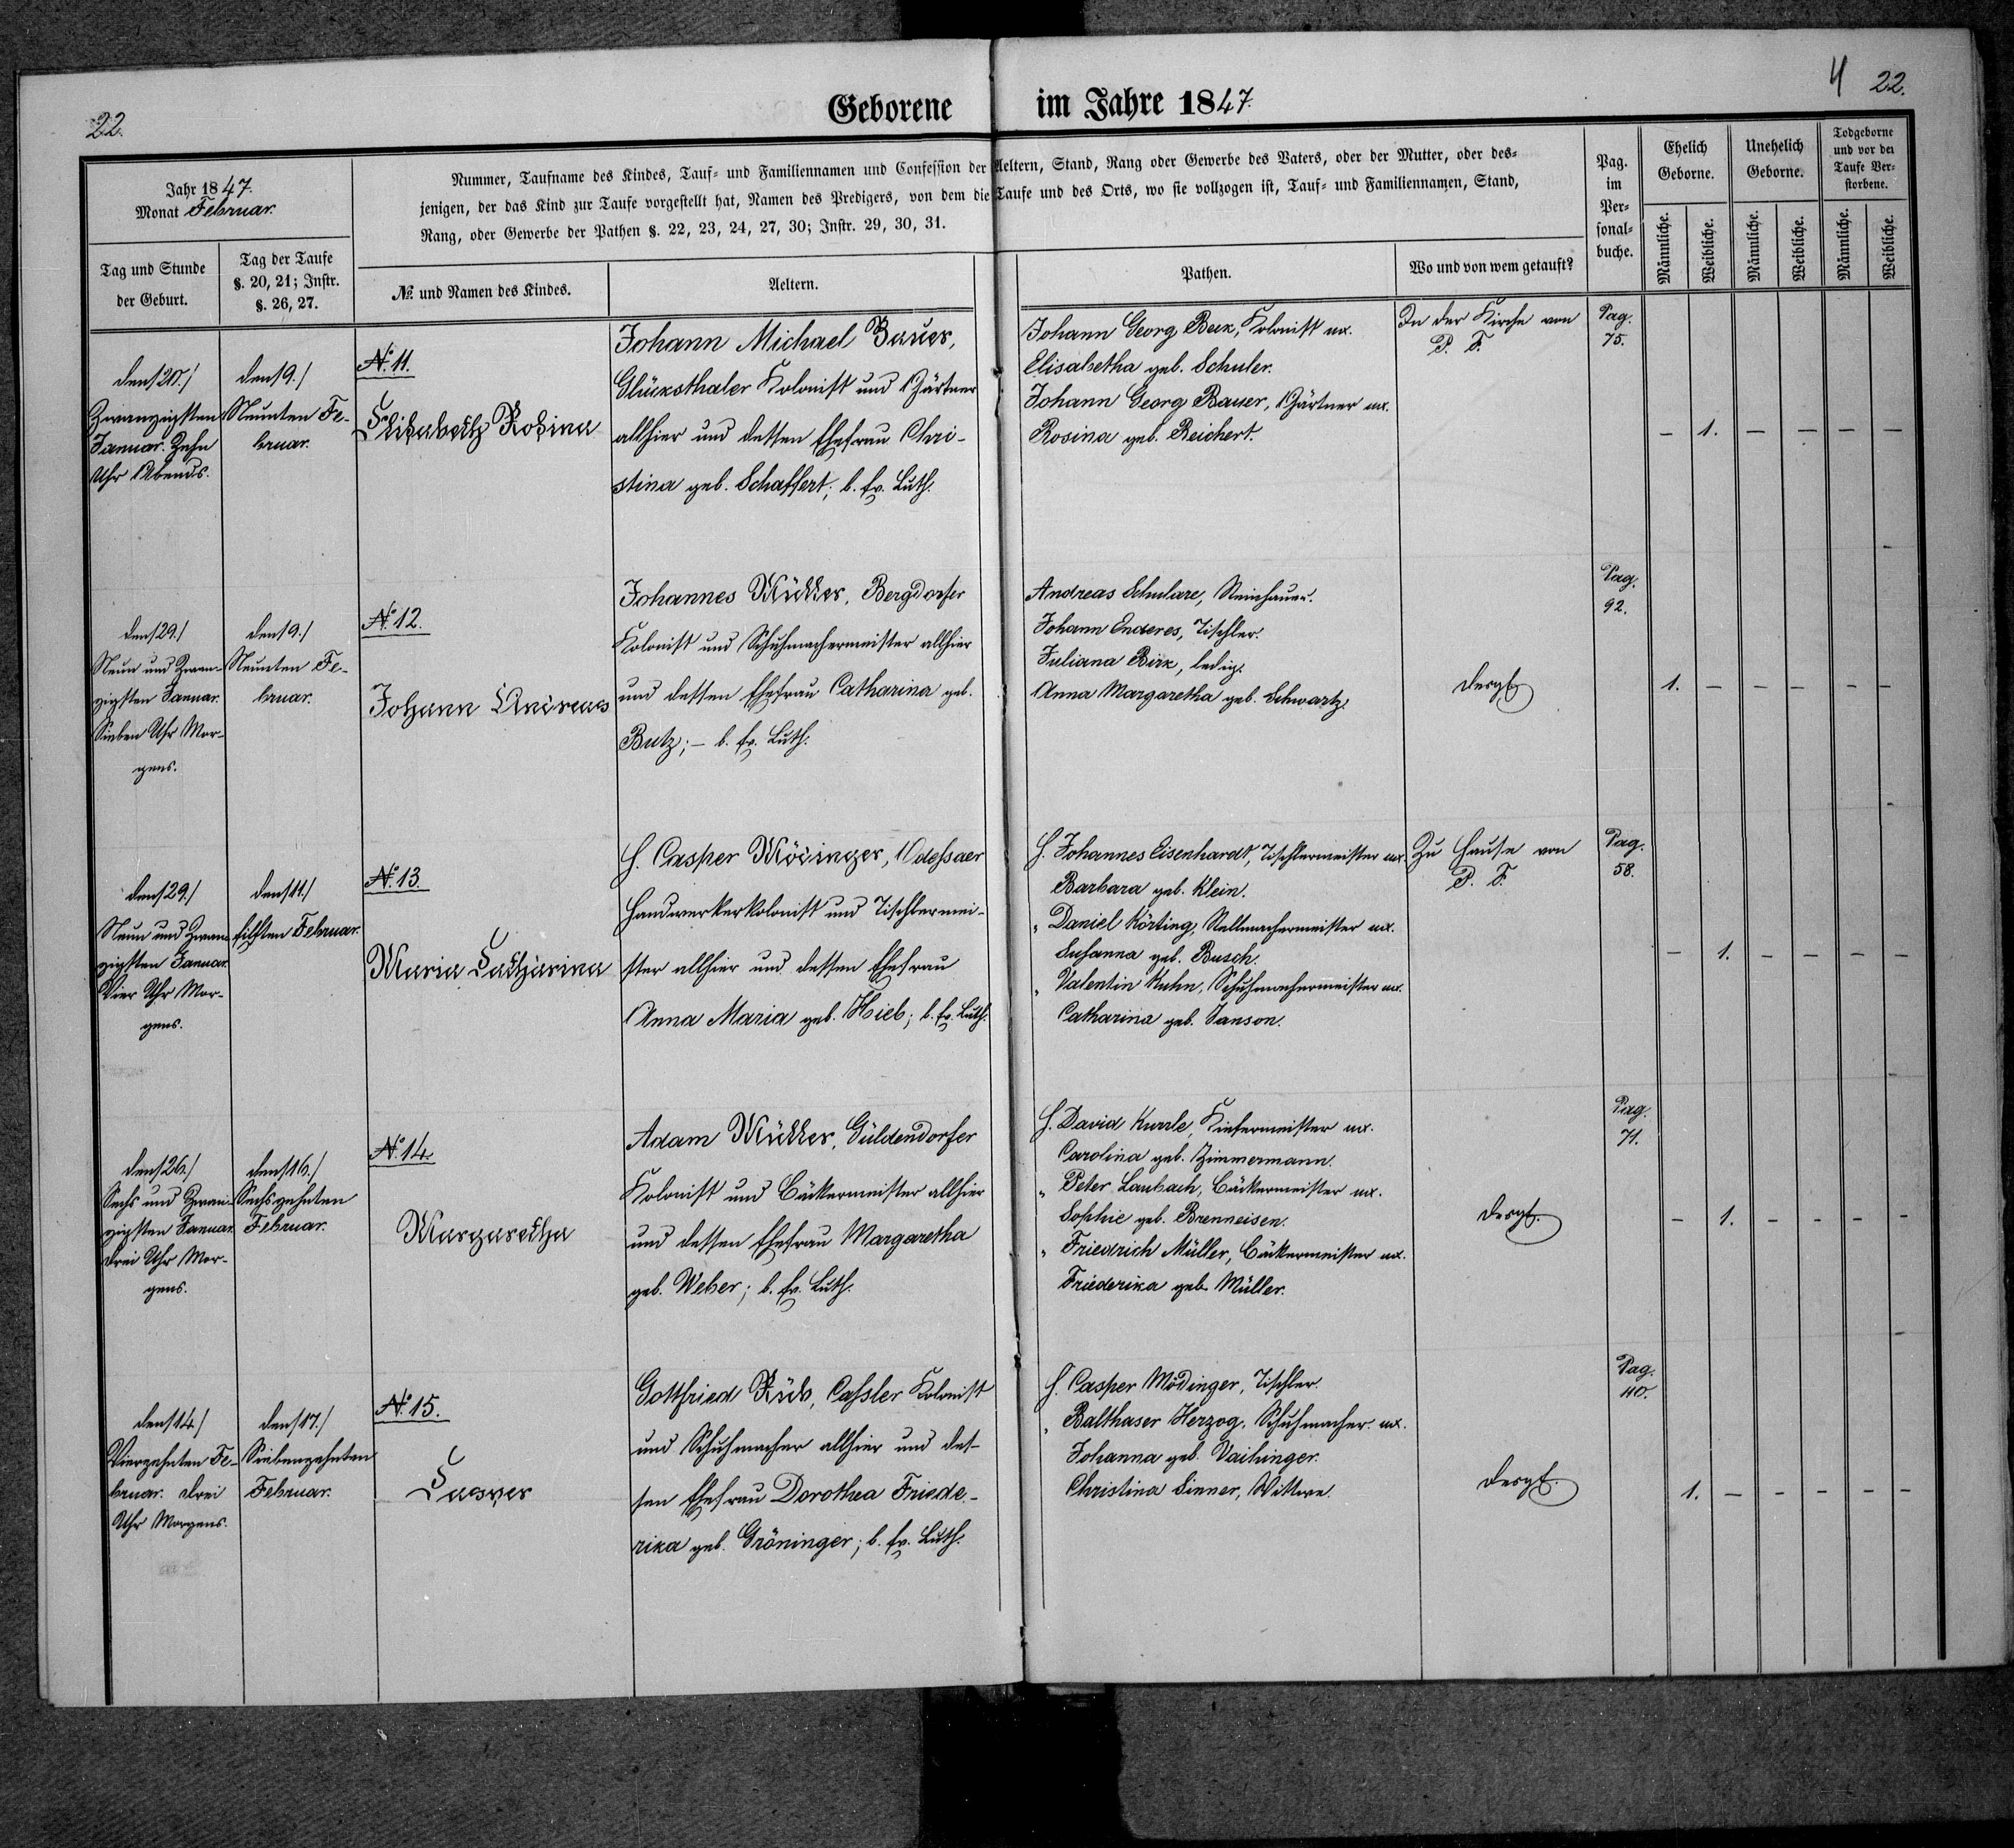 22.
Geborene im Jahre 1847.
4 22.
Jahr 1847.
Monat Februar.
Tag und Stunde
der Geburt.
Tag der Taufe
§. 20, 21; Instr.
§. 26, 27.
Nummer, Taufname des Kindes, Tauf- und Familiennamen und Confession der Aeltern, Stand, Rang oder Gewerbe des Vaters, oder der Mutter, oder des-
jenigen, der das Kind zur Taufe vorgestellt hat, Namen des Predigers, von dem die Taufe und des Orts, wo sie vollzogen ist, Tauf- und Familiennamen, Stand,
Rang, oder Gewerbe der Pathen §. 22, 23, 24, 27, 30; Instr. 29, 30, 31.
№ und Namen des Kindes.
Aeltern.
Pathen.
Wo und von wem getauft?
Pag.
im
Per-
sonal-
buche.
Ehelich
Geborne.
Unehelich
Geborne.
Todgeborne
und vor der
Taufe Ver-
storbene.
Männliche.
Weibliche.
Männliche.
Weibliche.
Männliche.
Weibliche.
den /20./
Zwanzigsten
Januar. Zehn
Uhr Abends.
den /9./
Neunten Fe-
bruar.
№ 11.
Elisabeth Rosina
Johann Michael Bauer,
Glücksthaler Kolonist und Gärtner
allhier und dessen Ehefrau Chri-
stina geb. Schaffert; b. Ev. Luth.
Johann Georg Beck, Kolonist ux.
Elisabetha geb. Schuler.
Johann Georg Bauer, Gärtner ux.
Rosina geb. Reichert.
In der Kirche von
P. F.
Pag.
75.
– 1. – – – –
den /29./
Neun und Zwan-
zigsten Januar.
Sieben Uhr Mor-
gens.
den /9./
Neunten Fe-
bruar.
№ 12.
Johann Andreas
Johannes Müller, Bergdorfer
Kolonist und Schuhmachermeister allhier
und dessen Ehefrau Catharina geb.
Butz; – b. Ev. Luth.
Andreas Schulare, Steinhauer.
Johann Enderes, Tischler.
Juliana Birk, ledig.
Anna Margaretha geb. Schwartz.
Desgl.
Pag.
92.
1. – – – – –
den /29./
Neun und Zwan-
zigsten Januar.
Vier Uhr Mor-
gens.
den /11./
Eilften Februar.
№ 13.
Maria Catharina
H. Casper Mödinger, Odessaer
Handwerkerkolonist und Tischlermei-
ster allhier und dessen Ehefrau
Anna Maria geb. Hieb; b. Ev. Luth.
H. Johannes Eisenhardt, Tischlermeister ux.
Barbara geb. Klein.
" Daniel Körting, Stellmachermeister ux.
Susanna geb. Busch.
" Valentin Kuhn, Schuhmachermeister ux.
Catharina geb. Janson.
Zu Hause von
P. F.
Pag.
58.
– 1. – – – –
den /26./
Sechs und Zwan-
zigsten Januar.
Drei Uhr Mor-
gens.
den /16./
Sechszehnten
Februar.
№ 14.
Margaretha
Adam Müller, Güldendorfer
Kolonist und Bäckermeister allhier
und dessen Ehefrau Margaretha
geb. Weber; b. Ev. Luth.
H. David Kurrle, Kiefermeister ux.
Carolina geb. Zimmermann.
" Peter Laubach, Bäckermeister ux.
Sophie geb. Brenneisen.
" Friedrich Müller, Bäckermeister ux.
Friederika geb. Müller.
Desgl.
Pag.
71.
– 1. – – – –
den /14./
Vierzehnten Fe-
bruar. Drei
Uhr Morgens.
den /17./
Siebenzehnten
Februar.
№ 15.
Casper
Gottfried Rüb, Cassler Kolonist
und Schuhmacher allhier und des-
sen Ehefrau Dorothea Friede-
rika geb. Gröninger; b. Ev. Luth.
H. Casper Mödinger, Tischler.
" Balthaser Herzog, Schuhmacher ux.
Johanna geb. Vaihinger.
Christina Sinner, Wittwe.
Desgl.
Pag.
40.
1. – – – – –